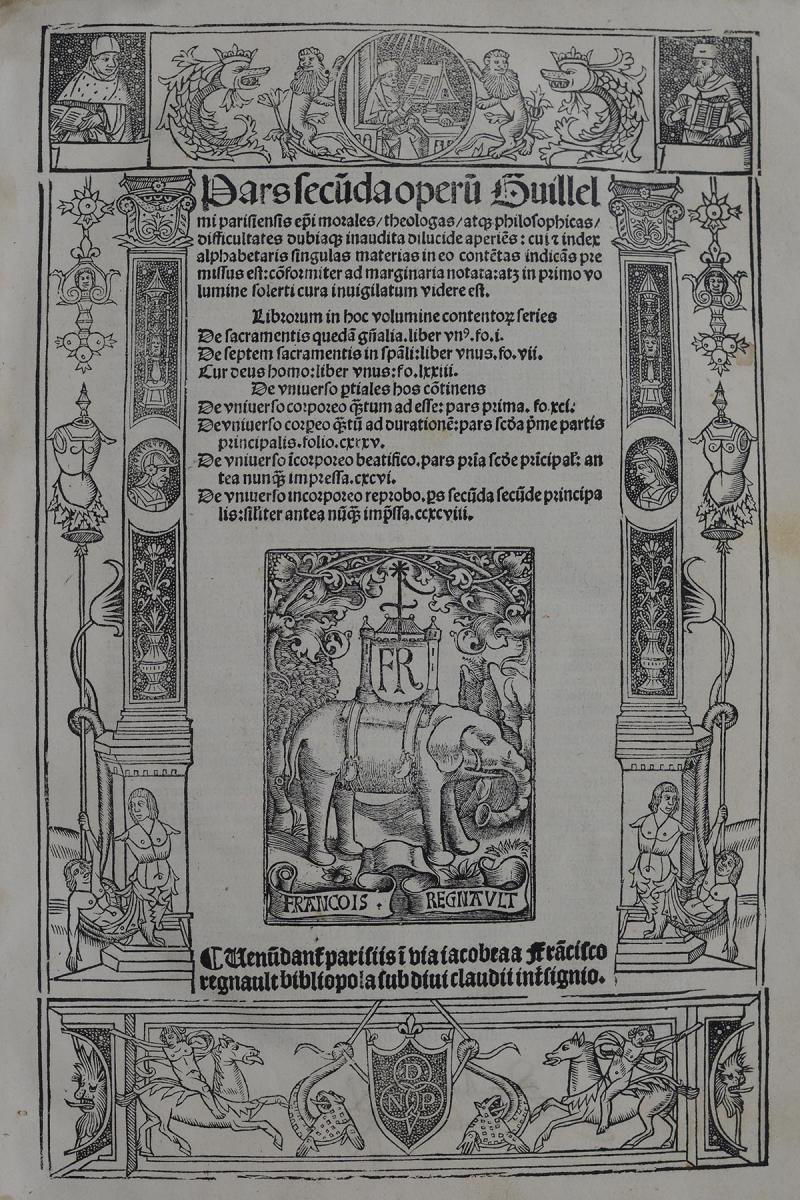 Pars secūda operū Guillel
mi parisiensis ep̄i morales/theologas/atqꝫ philosophicas/
difficultates dubiaqꝫ inaudita dilucide aperiēs: cui ⁊ index
alphabetaris singulas materias in eo contētas indicās pre
missus est: cōformiter ad marginaria notata: atqꝫ in primo vo
lumine solerti cura inuigilatum videre est.
Librorum in hoc volumine contentoꝝ series
De sacramentis quedā gn̄alia. liber vnꝰ. fo. i.
De septem sacramentis in sp̄ali: liber vnus. fo. vii.
Cur deus homo: liber vnus: fo. lxxiii.
De vniuerso ꝑtiales hos cōtinens
De vniuerso corporeo qꝫ̄tum ad esse: pars prima. fo. xci.
De vniuerso corꝑeo qꝫ̄tū ad durationē: pars scd̄a p̄me partis
principalis. folio. cxxxv.
De vniuerso īcorporeo beatifico. pars pria scd̄e prīcipal': an
tea nunqꝫ̄ impressa. cxcvi.
De vniuerso incorporeo reprobo. ꝑs secūda secūde principa
lis: sil'iter antea nūqꝫ̄ imp̄ssa. ccxcviii.
FR
FRANCOIS · REGNAULT
¶ Uenūdant᷑ parisiis ī via iacobea a Frācisco
regnault bibliopola sub diui claudii int᷑signio.
D
N P